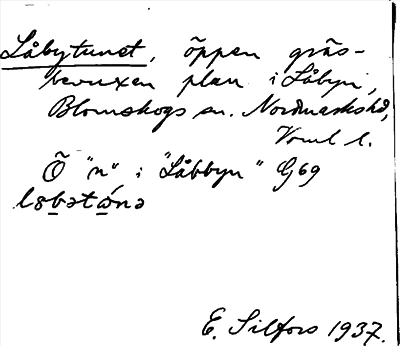 Låbytunet, öppen gräs-
bevuxen plan i Låbyn,
Blomskogs sn. Nordmarkshd,
Vrml l.
Ö "n" i "Låbbyn" G69
E. Silfors 1937.